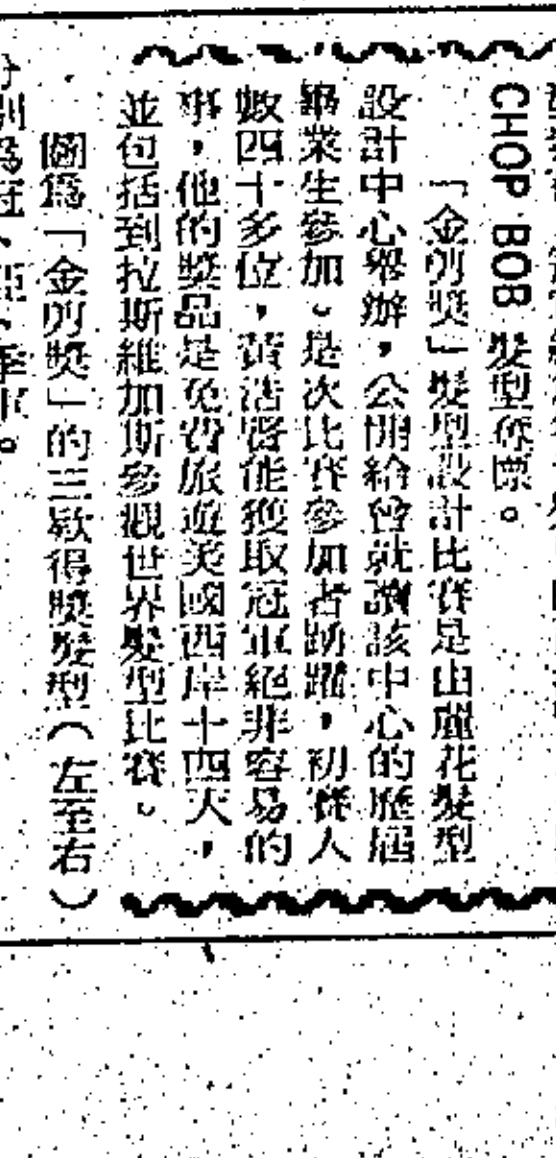 CHOP BOB 髮型奪標。
「金剪獎」髮型設計比賽是由麗花髮型
設計中心舉辦，公開給曾就讀該中心的歷屆
畢業生參加。是次比賽參加者踴躍，初賽人
數四十多位，黃浩賢能獲取冠軍絕非容易的
事，他的獎品是免費旅遊美國西岸十四天，
並包括到拉斯維加斯參觀世界髮型比賽。
圖爲「金剪獎」的三款得獎髮型（左至右）
分別爲冠、亞、季軍。